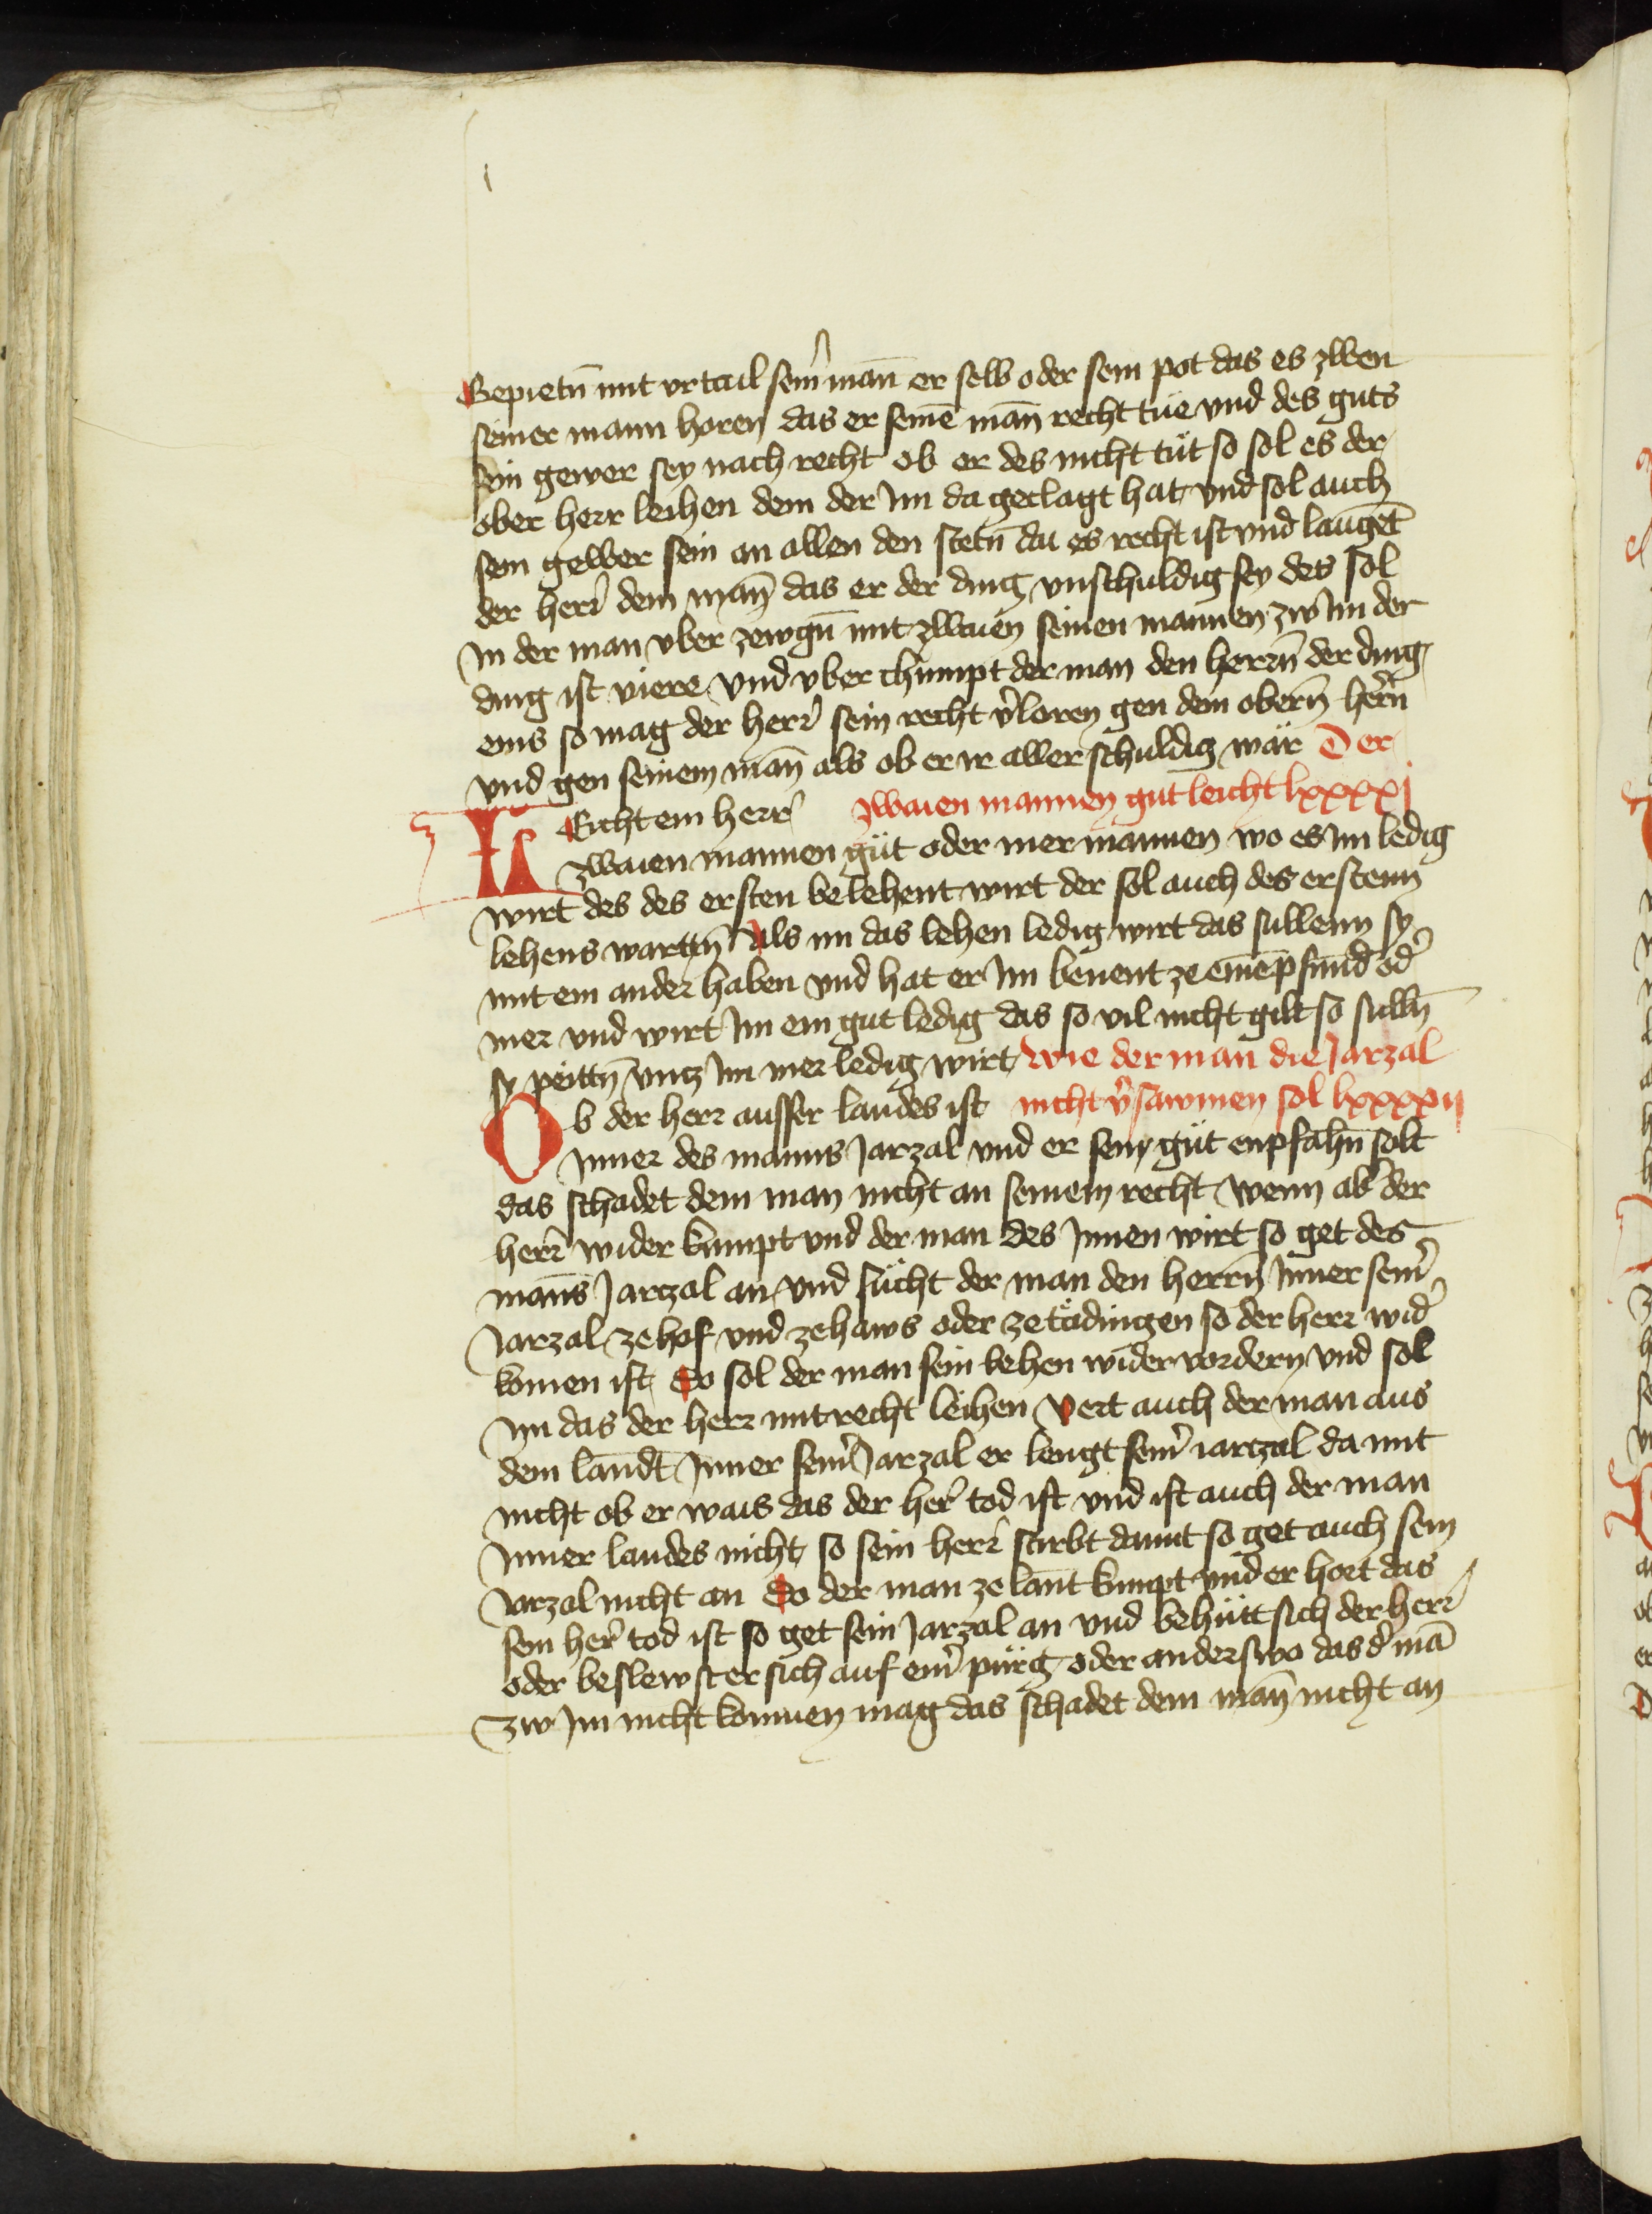 Gepietn̄ mit vrtail sein̾ man̄ er selb oder sein pot das es zwen
seiner mann horen das er seinē man̄ recht tüe vnd des guts
sein gewer sey nach recht ob er des nicht tüt so sol es der
ober herr leihen dem der Im da geclagt hat vnd sol auch
sein gewer sein an allen den stetn̄ da es recht ist vnd lauget̄
der herr̾ dem man̄ das er der ding vnschuldig sey des sol
In der man vber zewgn̄ mit zwaien seinen mannen zw Im der
ding ist viere vnd vber chümpt der man den herrn̄ der ding
eins so mag der herr̾ sein recht v̾loren gen dem obern̄ her̾n
vnd gen seinem man̄ als ob er ir aller schuldig wär Der
LEicht ein herr̾ zwaien mannen gut leicht lxxxxj
zwaien mannen güt oder mer mannen wo es Im ledig
wirt des des ersten belehent wirt der sol auch des erstenn
lehens warttn̄ Als im das lehen ledig wirt das sullenn sy
mit ein ander haben vnd hat er Im benent ze einē pfund od̾
mer vnd wirt Im ein gut ledig das so vil nicht gilt so sulln̄
sy peittn̄ vntz Im mer ledig wirt wie der man die Jarzal
Ob der herr ausser landes ist nicht v̾sawmen sol lxxxxij
Inner des manns Jarzal vnd er sein güt enpfahn̄ solt
das schadet dem man nicht an seinem recht wenn ab̾ der
herr̾ wider kumpt vnd der man des Innen wirt so get des
man̄s Jarczal an vnd sücht der man den herrn̄ Inner sein̾
Jarzal ze hof vnd ze haws oder ze tädingen so der herr wid̾
komen ist So sol der man sein lehen wider vordern vnd sol
Im das der herr mit recht leihen Vert auch der man aus
dem landt Inner sein̾ Jarzal er lengt sein̾ iarczal da mit
nicht ob er wais das der her̾ tod ist vnd ist auch der man
Inner landes nicht so sein herr̾ stirbt damit so get auch sein
Jarzal nicht an So der man ze lant kumpt vnd er hort das
sein her̾ tod ist so get sein Jarzal an vnd behütt sich der herr̾
oder beslewst er sich auf ein̾ pürg oder anderswo das d̾ mā
zw Im nicht komen mag das schadet dem man̄ nicht an